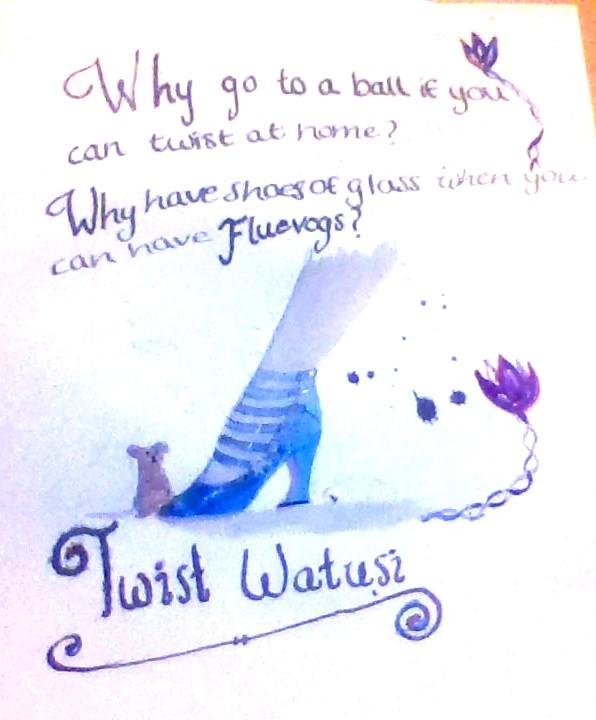 Why go to a ball if you
can twist at home?
Why have shoes of glass when you
can have Fluevogs?
Twist Watusi